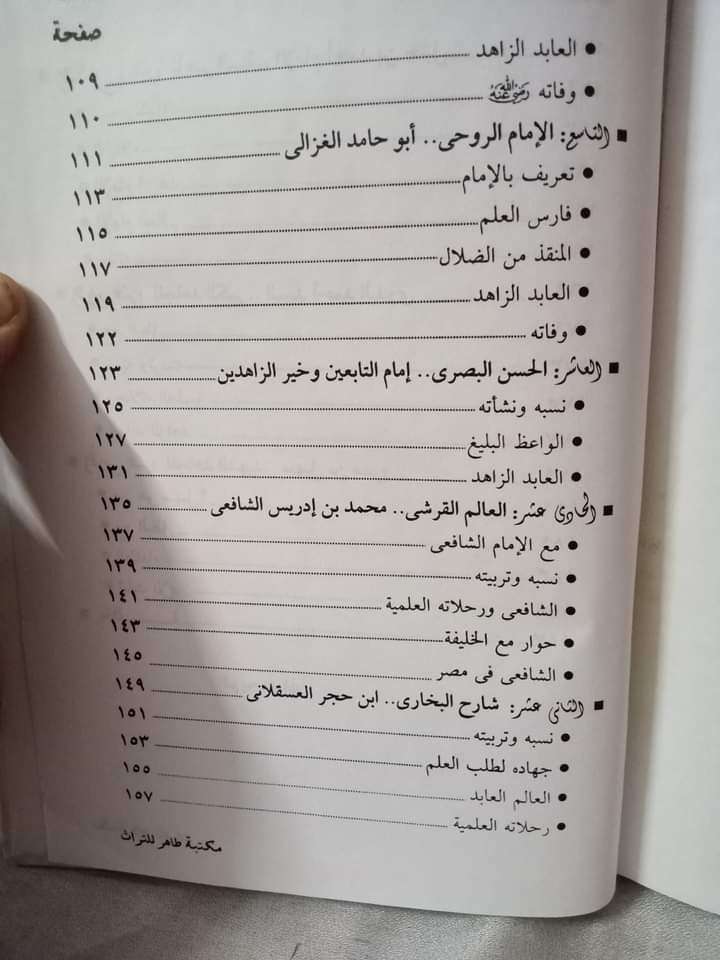 صفحة
• العابد الزاهد ........ ١٠٩
• وفاته رَضِيَ اللَّهُ عَنْهُ ........ ١١٠
■ التاسع: الإمام الروحى.. أبو حامد الغزالى ........ ١١١
• تعريف بالإمام ........ ١١٣
• فارس العلم ........ ١١٥
• المنقذ من الضلال ........ ١١٧
• العابد الزاهد ........ ١١٩
• وفاته ........ ١٢٢
■ العاشر: الحسن البصرى.. إمام التابعين وخير الزاهدين ........ ١٢٣
• نسبه ونشأته ........ ١٢٥
• الواعظ البليغ ........ ١٢٧
• العابد الزاهد ........ ١٣١
■ الحادى عشر: العالم القرشى.. محمد بن إدريس الشافعى ........ ١٣٥
• مع الإمام الشافعى ........ ١٣٧
• نسبه وتربيته ........ ١٣٩
• الشافعى ورحلاته العلمية ........ ١٤١
• حوار مع الخليفة ........ ١٤٣
• الشافعى فى مصر ........ ١٤٥
■ الثانى عشر: شارح البخارى.. ابن حجر العسقلانى ........ ١٤٩
• نسبه وتربيته ........ ١٥١
• جهاده لطلب العلم ........ ١٥٣
• العالم العابد ........ ١٥٥
• رحلاته العلمية ........ ١٥٧
مكتبة طاهر للتراث